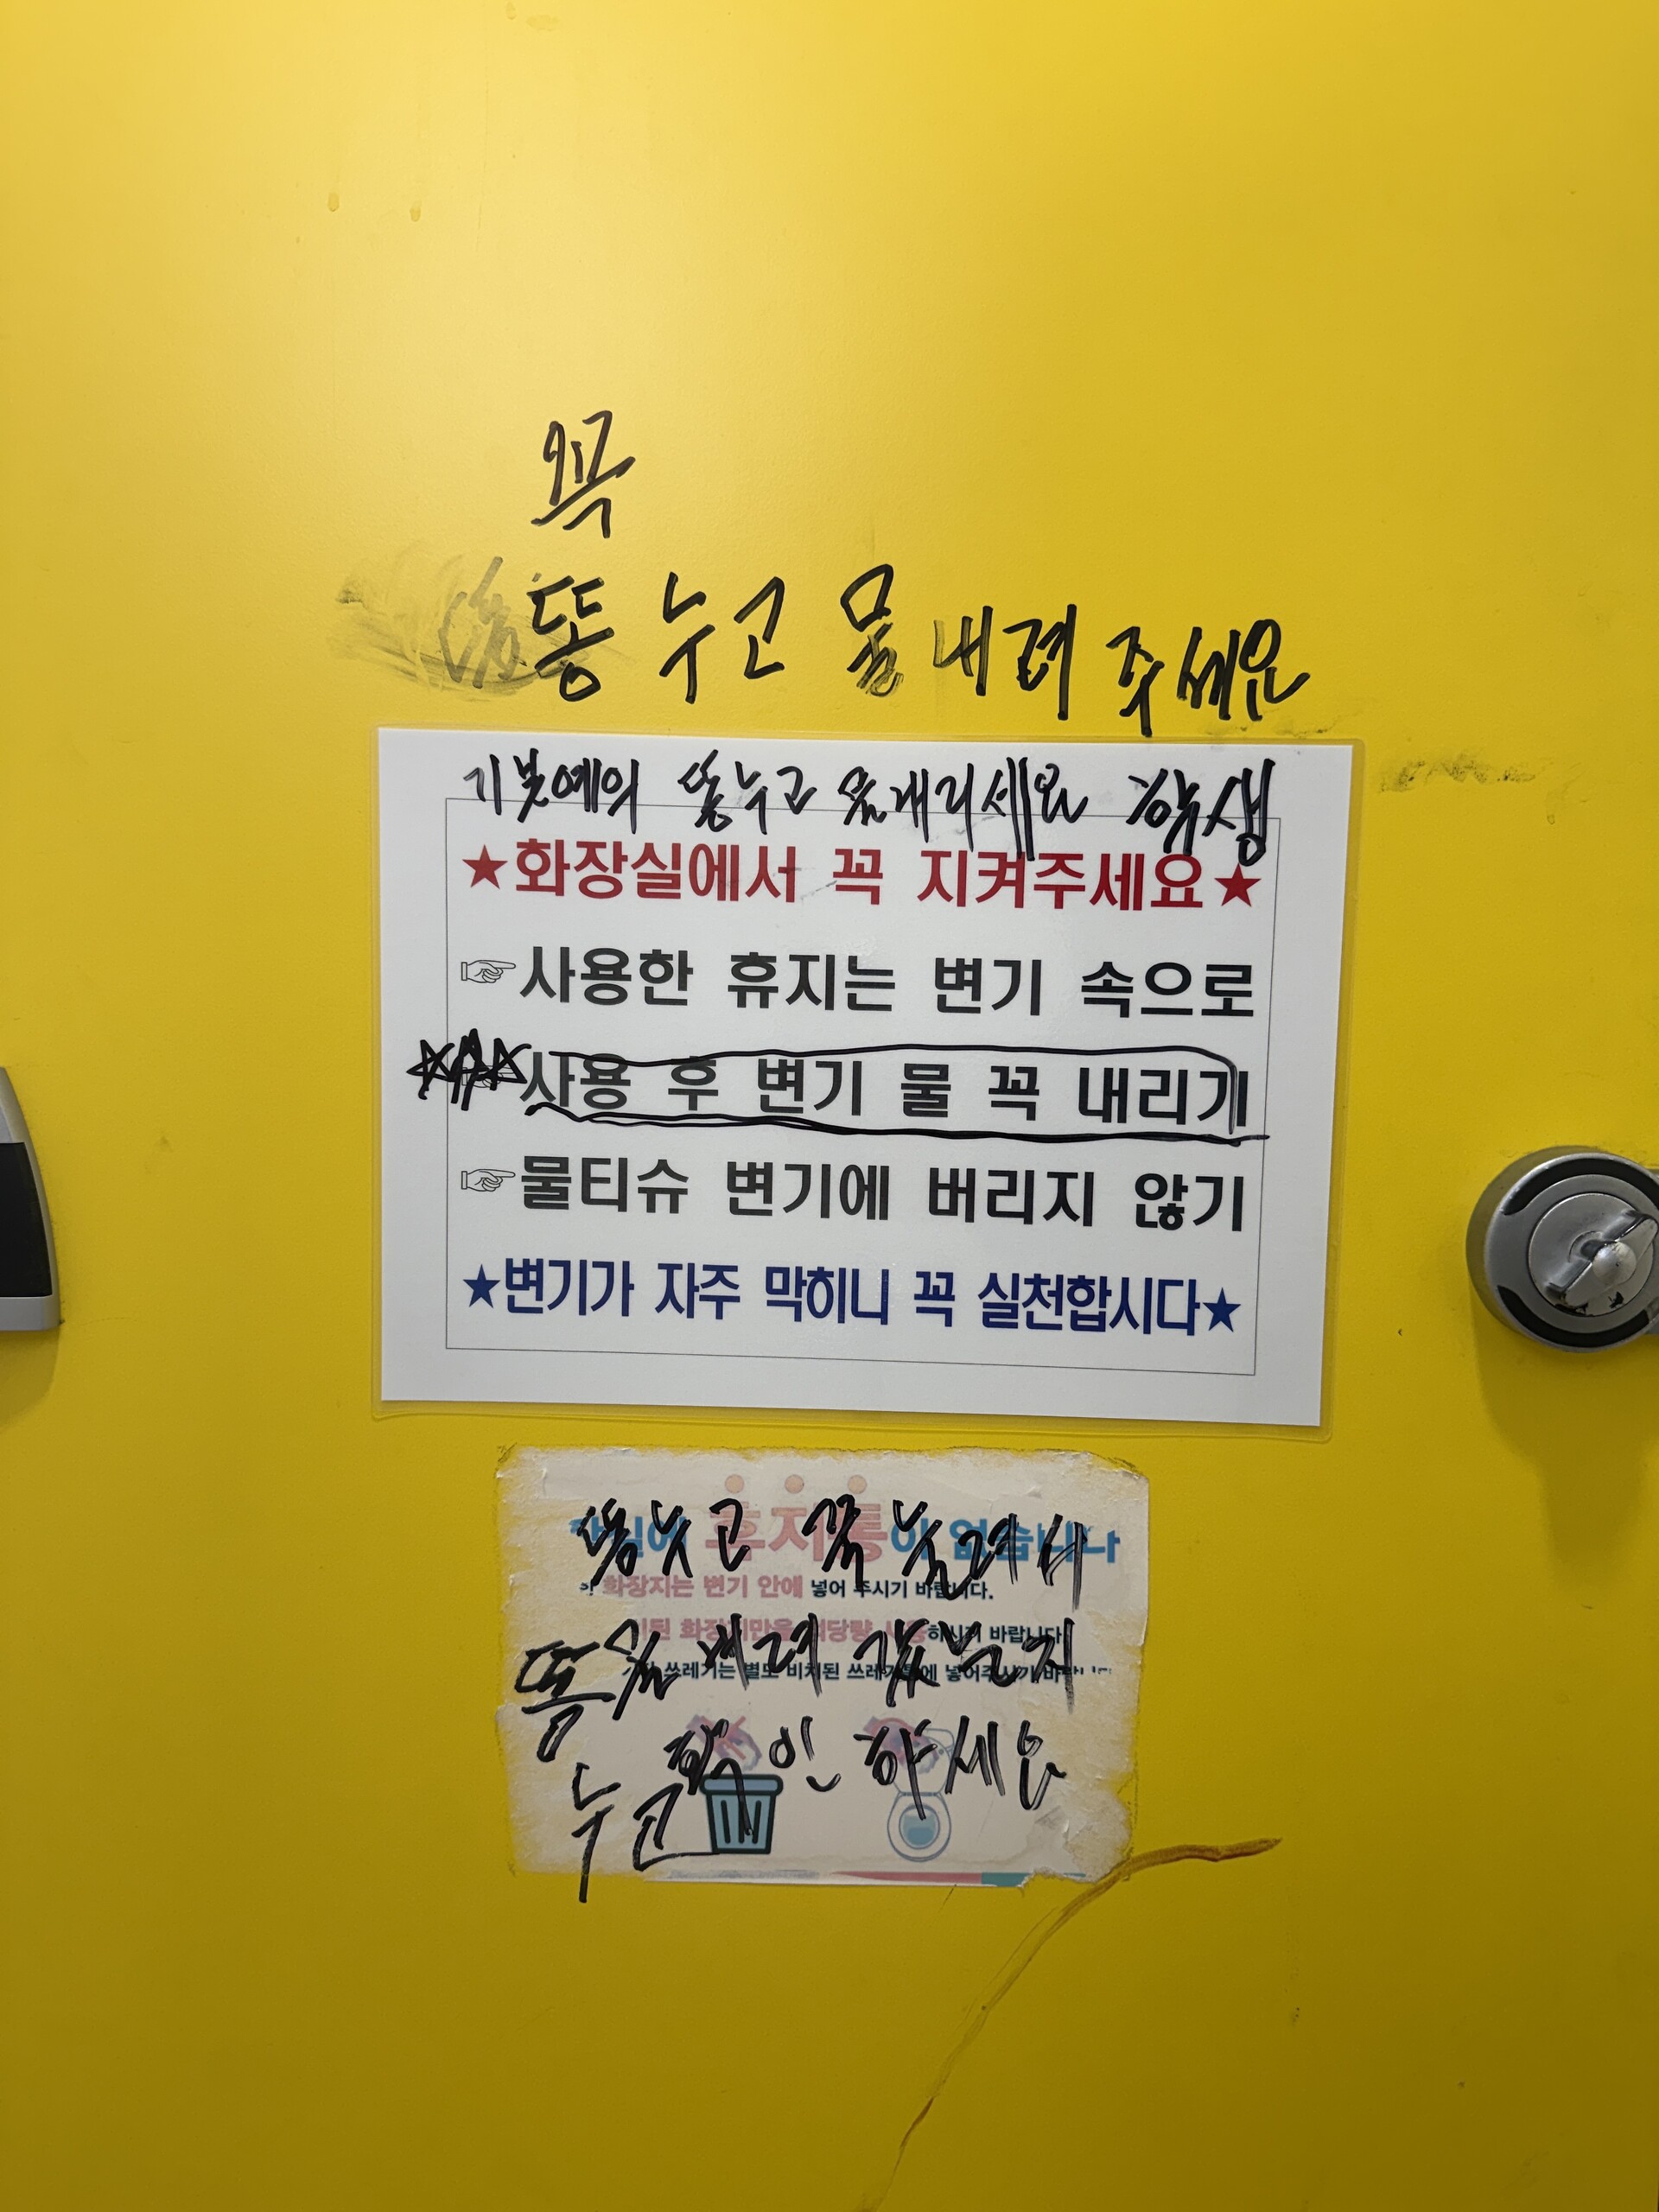 꼭
똥 누고 물 내려 주세요
기본예의 똥누고 물내리세요 학생
★화장실에서 꼭 지켜주세요★
☞사용한 휴지는 변기 속으로
사용 후 변기 물 꼭 내리기
☞물티슈 변기에 버리지 않기
★변기가 자주 막히니 꼭 실천합시다★
똥누고 꼭 눌러서
휴지통이 없습니다
화장지는 변기 안에 넣어 주시기 바랍니다.
화장지만을 적당량 사용하시기 바랍니다.
쓰레기는 별도 비치된 쓰레기통에 넣어주시기
똥물 내려 갔는지
확인 하세요
누고